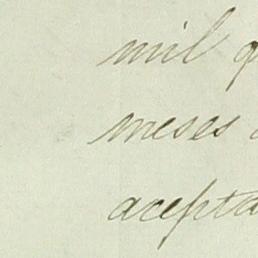 mil
meses
acepta